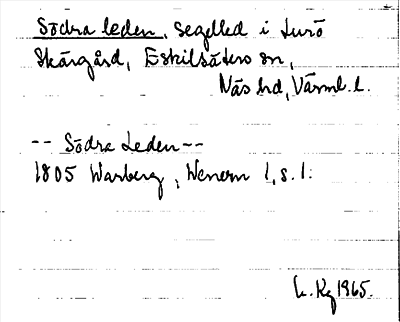 Södra leden, segelled i Lurö
Skärgård, Eskilsäters sn,
Näs hd, Värml. l.
-- Södra Leden --
1805 Warberg, Wenern 1, s. 1.
L. Kg 1965.